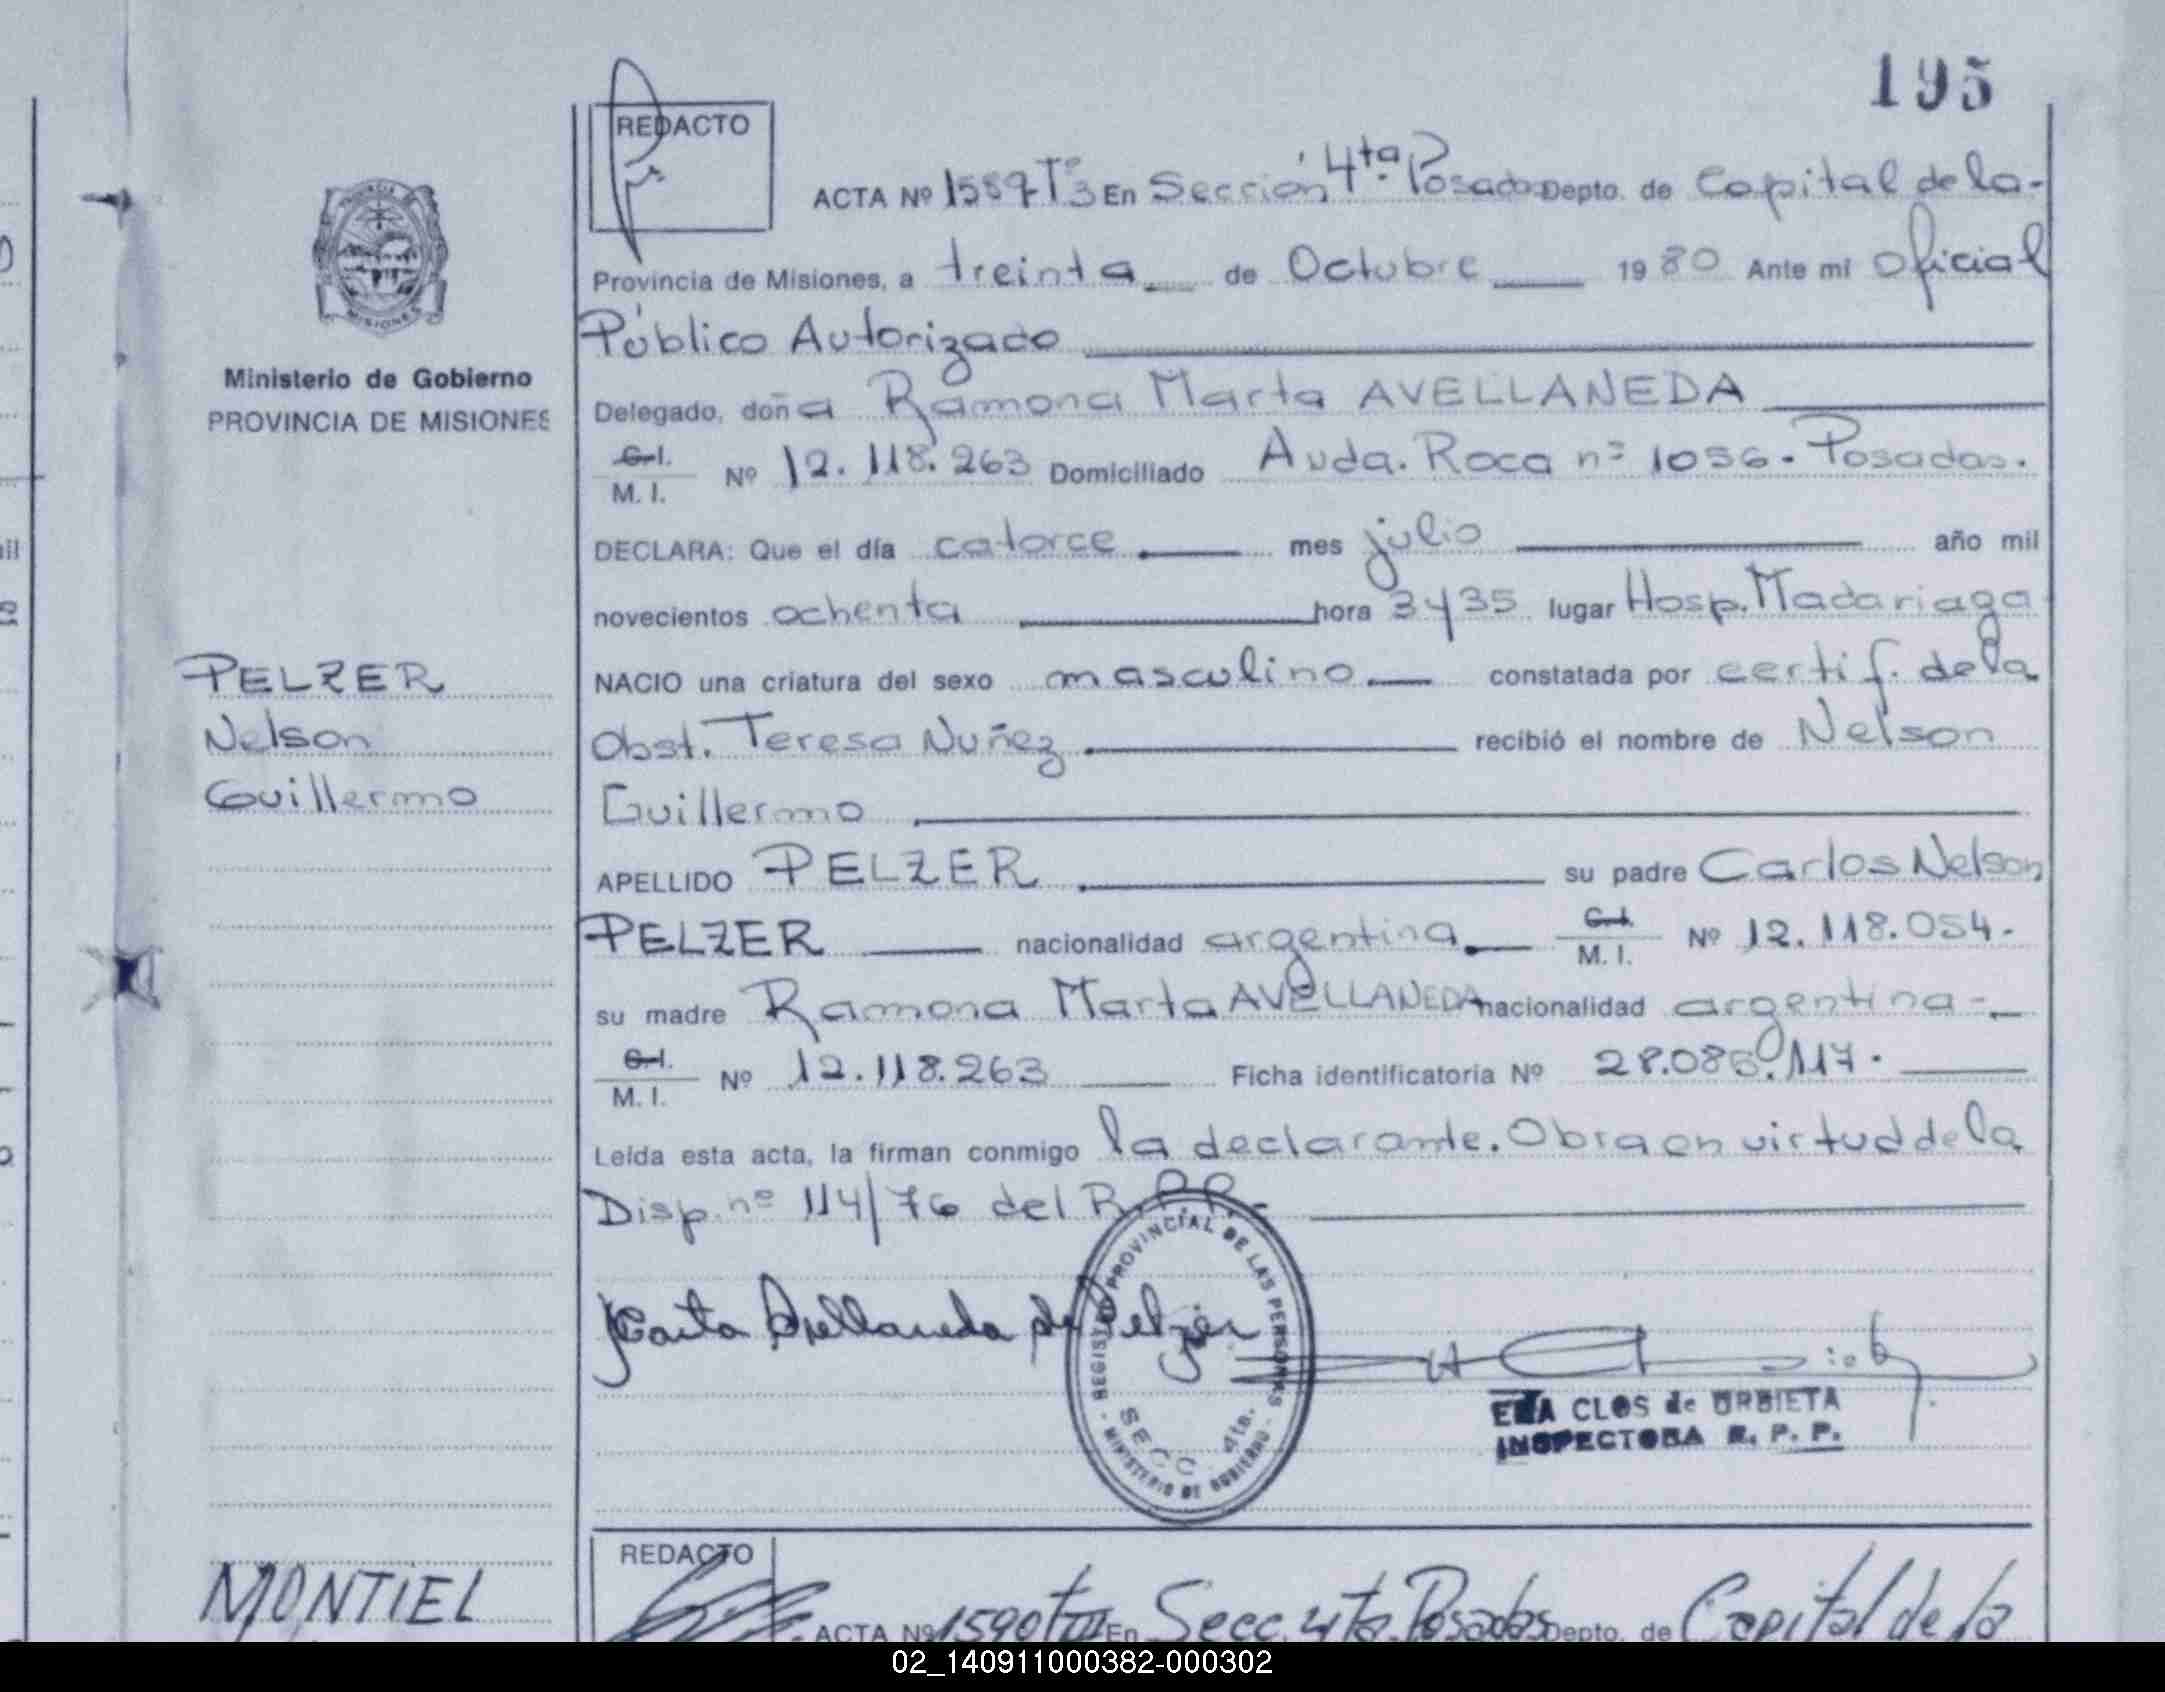 195
REDACTO
ACTA Nº 1589 Tº3 En Sección 4ta. Posadas Depto. de Capital de la-
Provincia de Misiones, a treinta de Octubre 1980 Ante mi Oficial
Público Autorizado
Delegado, doña Ramona Marta AVELLANEDA
C.I.
M. I. Nº 12.118.263 Domiciliado Avda. Roca nº 1056. Posadas.
DECLARA: Que el día catorce mes julio año mil
novecientos ochenta hora 3 y 35 lugar Hosp. Madariaga
NACIO una criatura del sexo masculino constatada por certif. de la
Obst. Teresa Nuñez recibió el nombre de Nelson
Guillermo
APELLIDO PELZER su padre Carlos Nelson
PELZER nacionalidad argentina C.I.
M. I. Nº 12.118.054.
su madre Ramona Marta AVELLANEDA nacionalidad argentina-
C.I.
M. I. Nº 12.118.263 Ficha identificatoria Nº 28.086.117.
Leída esta acta, la firman conmigo la declarante. Obra en virtud de la
Disp. nº 114/76 del R.P.P.-
Marta Avellaneda de Pelzer
REGISTRO PROVINCIAL DE LAS PERSONAS
SECC. 4ta.
MINISTERIO DE GOBIERNO
CLOS de URBIETA
INSPECTORA R. P. P.
PROVINCIA
MISIONES
Ministerio de Gobierno
PROVINCIA DE MISIONES
PELZER
Nelson
Guillermo
MONTIEL
REDACTO
ACTA Nº 1590 TIII En Secc. 4ta. Posadas Depto. de Capital de la
02_140911000382-000302